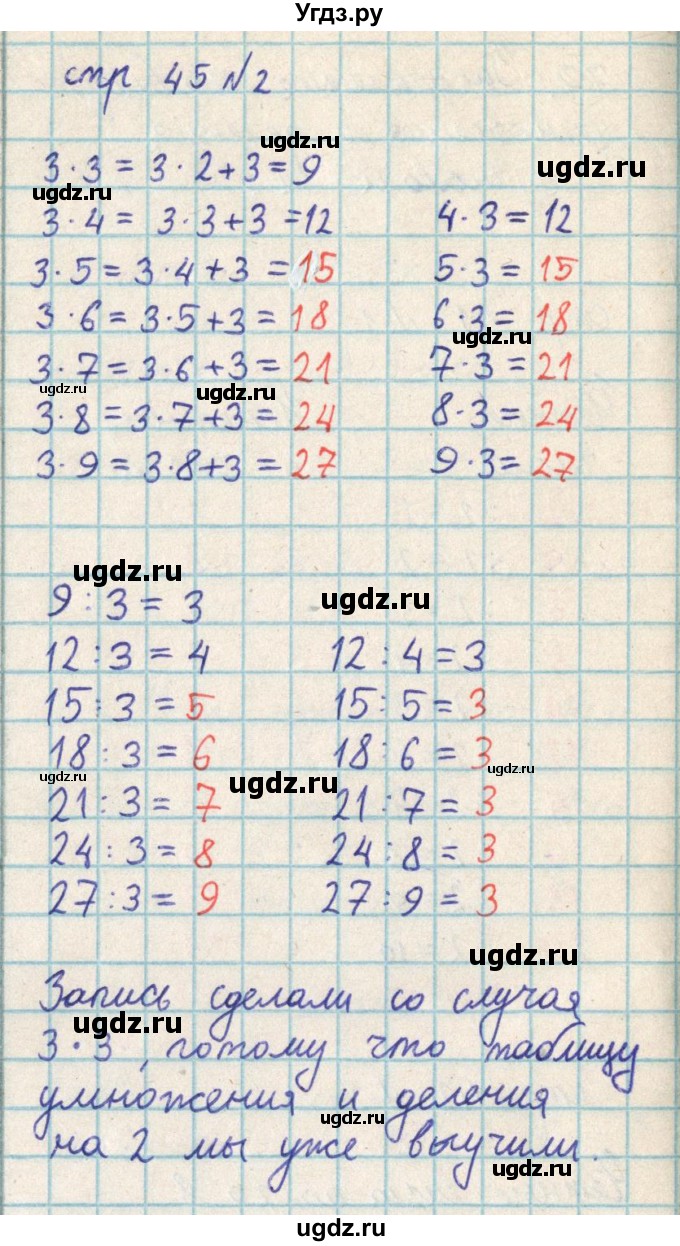 Угдз.ру
стр 45 №2
ugdz.ru
3·3 = 3·2+3=9
ugdz.ru
ugdz.ru
3·4 = 3·3+3 =12 4·3= 12
3·5 = 3·4+3 = 15 5·3 = 15
3·6 = 3·5+3 = 18 6·3= 18
ugdz.ru
3·7 = 3·6+3 = 21 7·3 = 21
ugdz.ru
ugdz.ru
3·8 = 3·7+3 = 24 8·3 = 24
3·9 = 3·8+3 = 27 9·3= 27
ugdz.ru
9:3 = 3
ugdz.ru
12:3 = 4 12:4=3
15:3 = 5 15:5= 3
18:3 = 6 18:6= 3
ugdz.ru
ugdz.ru
ugdz.ru
21:3= 7 21:7= 3
24:3= 8 24:8 = 3
27:3= 9 27:9= 3
ugdz.ru
Запись сделали со случая
ugdz.ru
3·3, потому что таблицу
умножения и деления
ugdz.ru
на 2 мы уже выучили.
ugdz.ru
ugdz.ru